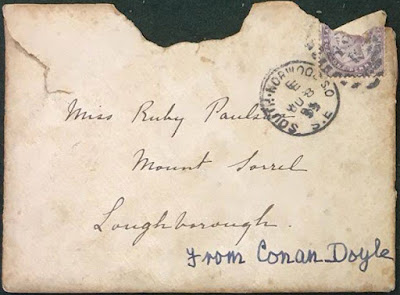 SOUTH-NORWOOD S.O
S.E
Miss Ruby
Mount Sorrel
Loughborough.
From Conan Doyle